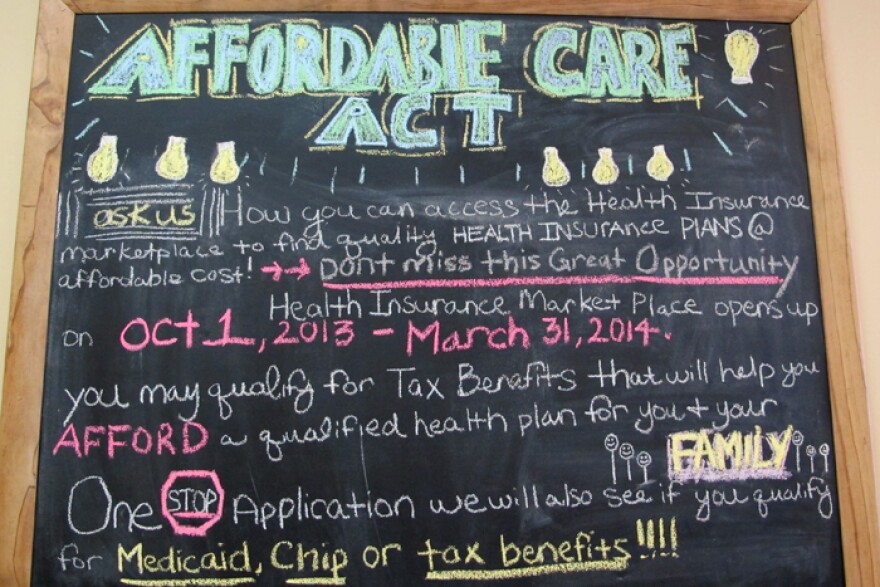 AFFORDABLE CARE
ACT
ask us How you can access the Health Insurance
marketplace to find quality HEALTH INSURANCE PLANS @
affordable cost! →→ Dont miss this Great Opportunity
Health Insurance Market Place opens up
on Oct 1, 2013 - March 31, 2014.
you may qualify for Tax Benefits that will help you
AFFORD a qualified health plan for you + your
FAMILY
One STOP Application we will also see if you qualify
for Medicaid, Chip or tax benefits!!!!